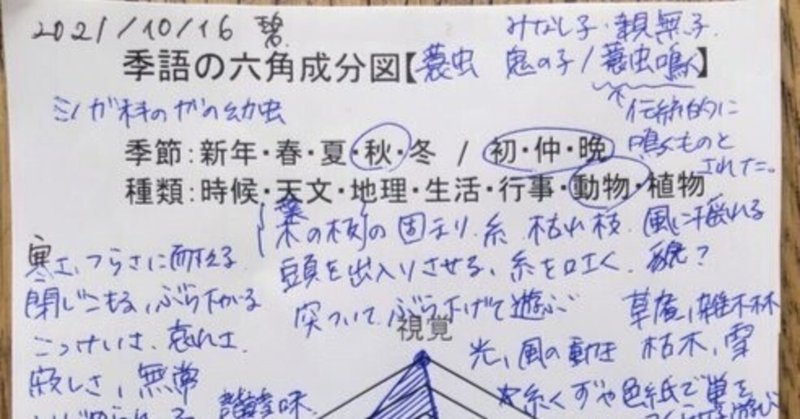 2021/10/16 碧
みなし子・親無子
季語の六角成分図【蓑虫 鬼の子/蓑虫鳴く】
ミノガ科のガの幼虫
伝統的に
鳴くものと
された。
季節:新年・春・夏・秋・冬 / 初・仲・晩
種類:時候・天文・地理・生活・行事・動物・植物
葉
木の枝の固まり、糸 枯れ枝 風に揺れる
寒さ、つらさに耐える
頭を出入りさせる、糸を吐く
閉じこもる、ぶら下がる
突ついて ぶら下げて遊ぶ
草庵、雑木林
こっけいさ、哀れさ
視覚
光、風の動き 枯木、雪
寂しさ、無常
糸くずや色紙で巣を
諧謔味